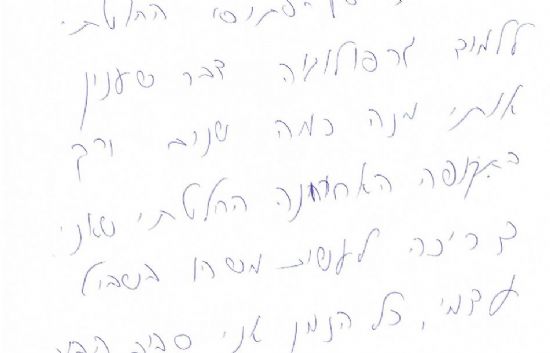 החלטתי
ללמוד גרפולוגיה דבר שענין
אותי מזה כמה שנים ורק
בתקופה האחרונה החלטתי שאני
צריכה לעשות משהו בשביל
עצמי, כל הזמן אני